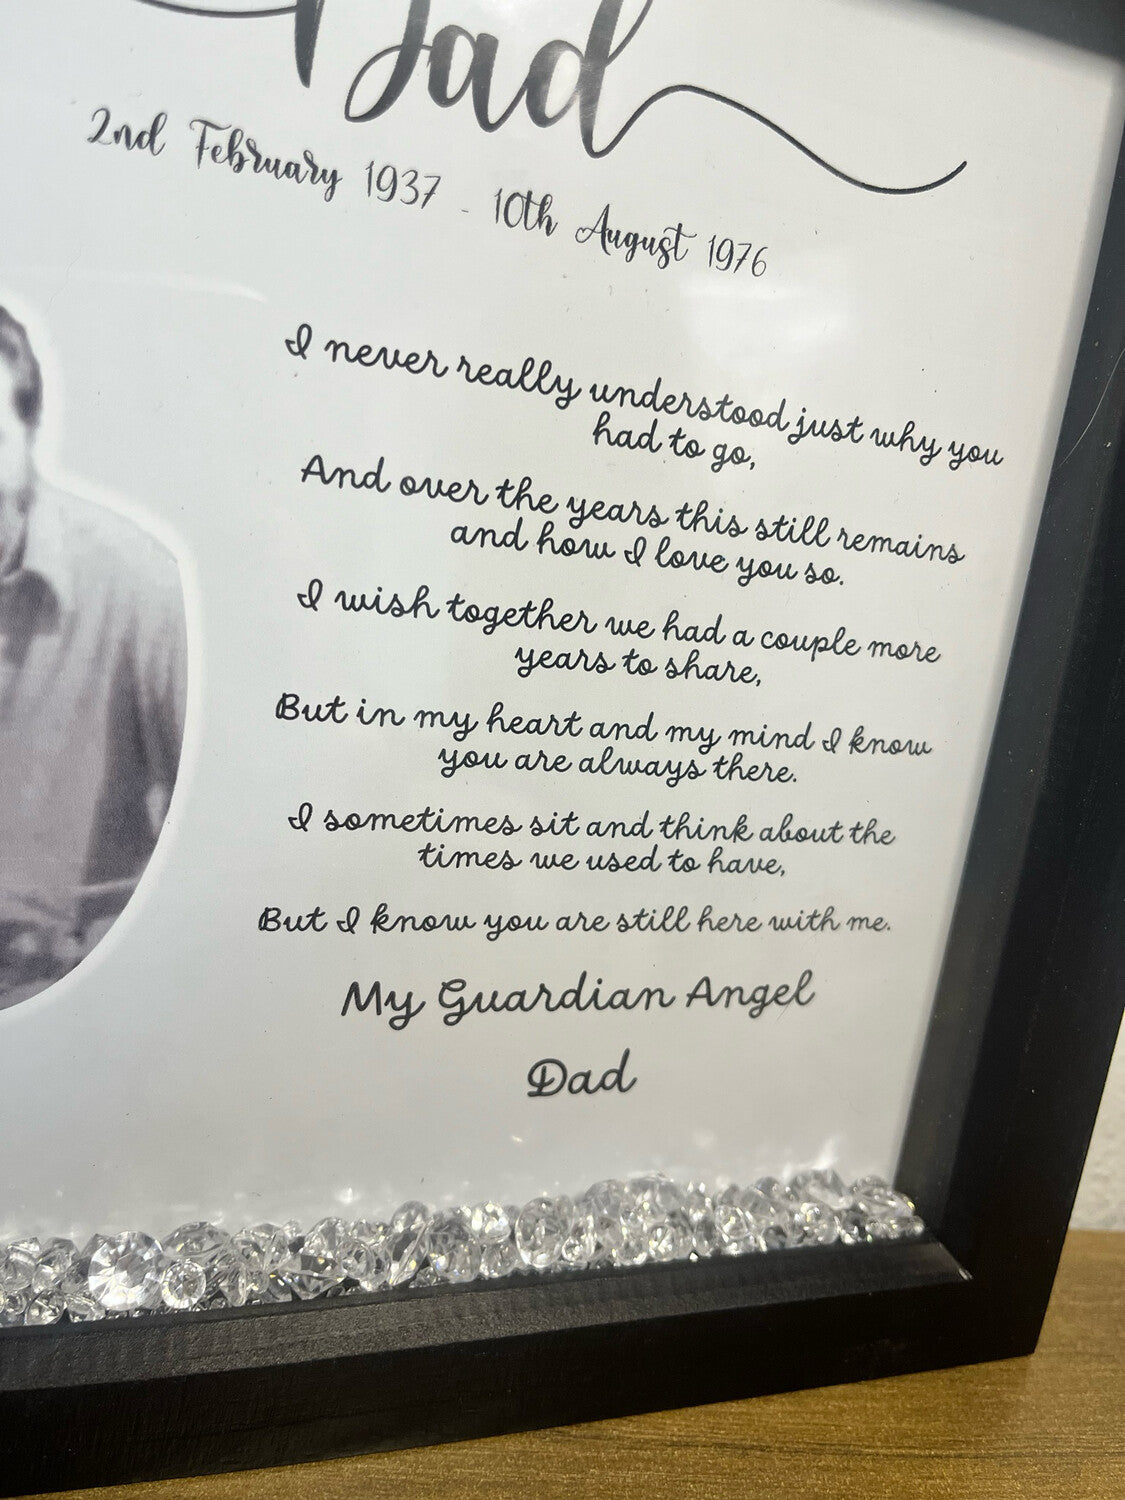 Dad
2nd February 1937 - 10th August 1976
I never really understood just why you
had to go,
And over the years this still remains
and how I love you so.
I wish together we had a couple more
years to share,
But in my heart and my mind I know
you are always there.
I sometimes sit and think about the
times we used to have,
But I know you are still here with me.
My Guardian Angel
Dad